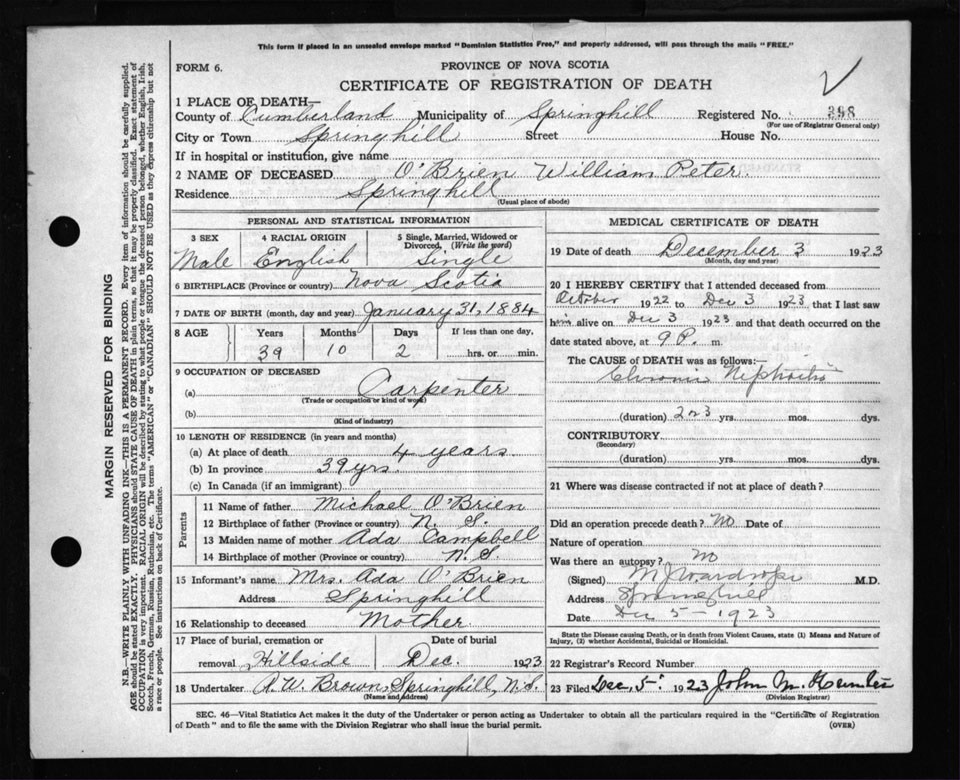 This form if placed in an unsealed envelope marked "Dominion Statistics Free," and properly addressed, will pass through the mails "FREE."
FORM 6.
PROVINCE OF NOVA SCOTIA
CERTIFICATE OF REGISTRATION OF DEATH
1 PLACE OF DEATH—
County of Cumberland Municipality of Springhill Registered No. 398
(For use of Registrar General only)
City or Town Springhill Street House No.
If in hospital or institution, give name
2 NAME OF DECEASED O'Brien William Peter.
Residence Springhill
(Usual place of abode)
PERSONAL AND STATISTICAL INFORMATION
3 SEX 4 RACIAL ORIGIN 5 Single, Married, Widowed or Divorced, (Write the word)
Male English Single
6 BIRTHPLACE (Province or country) Nova Scotia
7 DATE OF BIRTH (month, day and year) January 31, 1884
8 AGE Years Months Days If less than one day,
39 10 2 hrs. or min.
9 OCCUPATION OF DECEASED
(a) Carpenter
(Trade or occupation or kind of work)
(b)
(Kind of industry)
10 LENGTH OF RESIDENCE (in years and months)
(a) At place of death 4 years
(b) In province 39 yrs.
(c) In Canada (if an immigrant)
Parents
11 Name of father Michael O'Brien
12 Birthplace of father (Province or country) N. S.
13 Maiden name of mother Ada Campbell
14 Birthplace of mother (Province or country) N. S.
15 Informant's name Mrs. Ada O'Brien
Address Springhill
16 Relationship to deceased Mother
17 Place of burial, cremation or Date of burial
removal Hillside Dec. 1923
18 Undertaker A. W. Brown, Springhill, N.S.
(Name and address)
MEDICAL CERTIFICATE OF DEATH
19 Date of death December 3 1923
(Month, day and year)
20 I HEREBY CERTIFY that I attended deceased from
October 1922 to Dec 3 1923 that I last saw
him alive on Dec 3 1923 and that death occurred on the
date stated above, at 9 P. m.
The CAUSE OF DEATH was as follows:—
Chronic Nephritis
(duration) 2 or 3 yrs. mos. dys.
CONTRIBUTORY
(Secondary)
(duration) yrs. mos. dys.
21 Where was disease contracted if not at place of death?
Did an operation precede death? No Date of
Nature of operation
Was there an autopsy? No
(Signed) M J Wardrope M.D.
Address Springhill
Date Dec 5— 1923
State the Disease causing Death, or in death from Violent Causes, state (1) Means and Nature of
Injury, (2) whether Accidental, Suicidal or Homicidal.
22 Registrar's Record Number
23 Filed Dec. 5. 1923 John M. Hunter
(Division Registrar)
SEC. 46—Vital Statistics Act makes it the duty of the Undertaker or person acting as Undertaker to obtain all the particulars required in the "Certificate of Registration
of Death" and to file the same with the Division Registrar who shall issue the burial permit. (OVER)
MARGIN RESERVED FOR BINDING
N.B.—WRITE PLAINLY WITH UNFADING INK—THIS IS A PERMANENT RECORD. Every item of information should be carefully supplied.
AGE should be stated EXACTLY. PHYSICIANS should STATE CAUSE OF DEATH in plain terms, so that it may be properly classified. Exact statement of
OCCUPATION is very important. RACIAL ORIGIN will be described by stating to what people or tongue the deceased person belonged, whether English, Irish,
Scotch, French, German, Russian, Ruthenian, etc. The terms "AMERICAN" or "CANADIAN" SHOULD NOT BE USED as they express citizenship but not
a race or people. See instructions on back of Certificate.